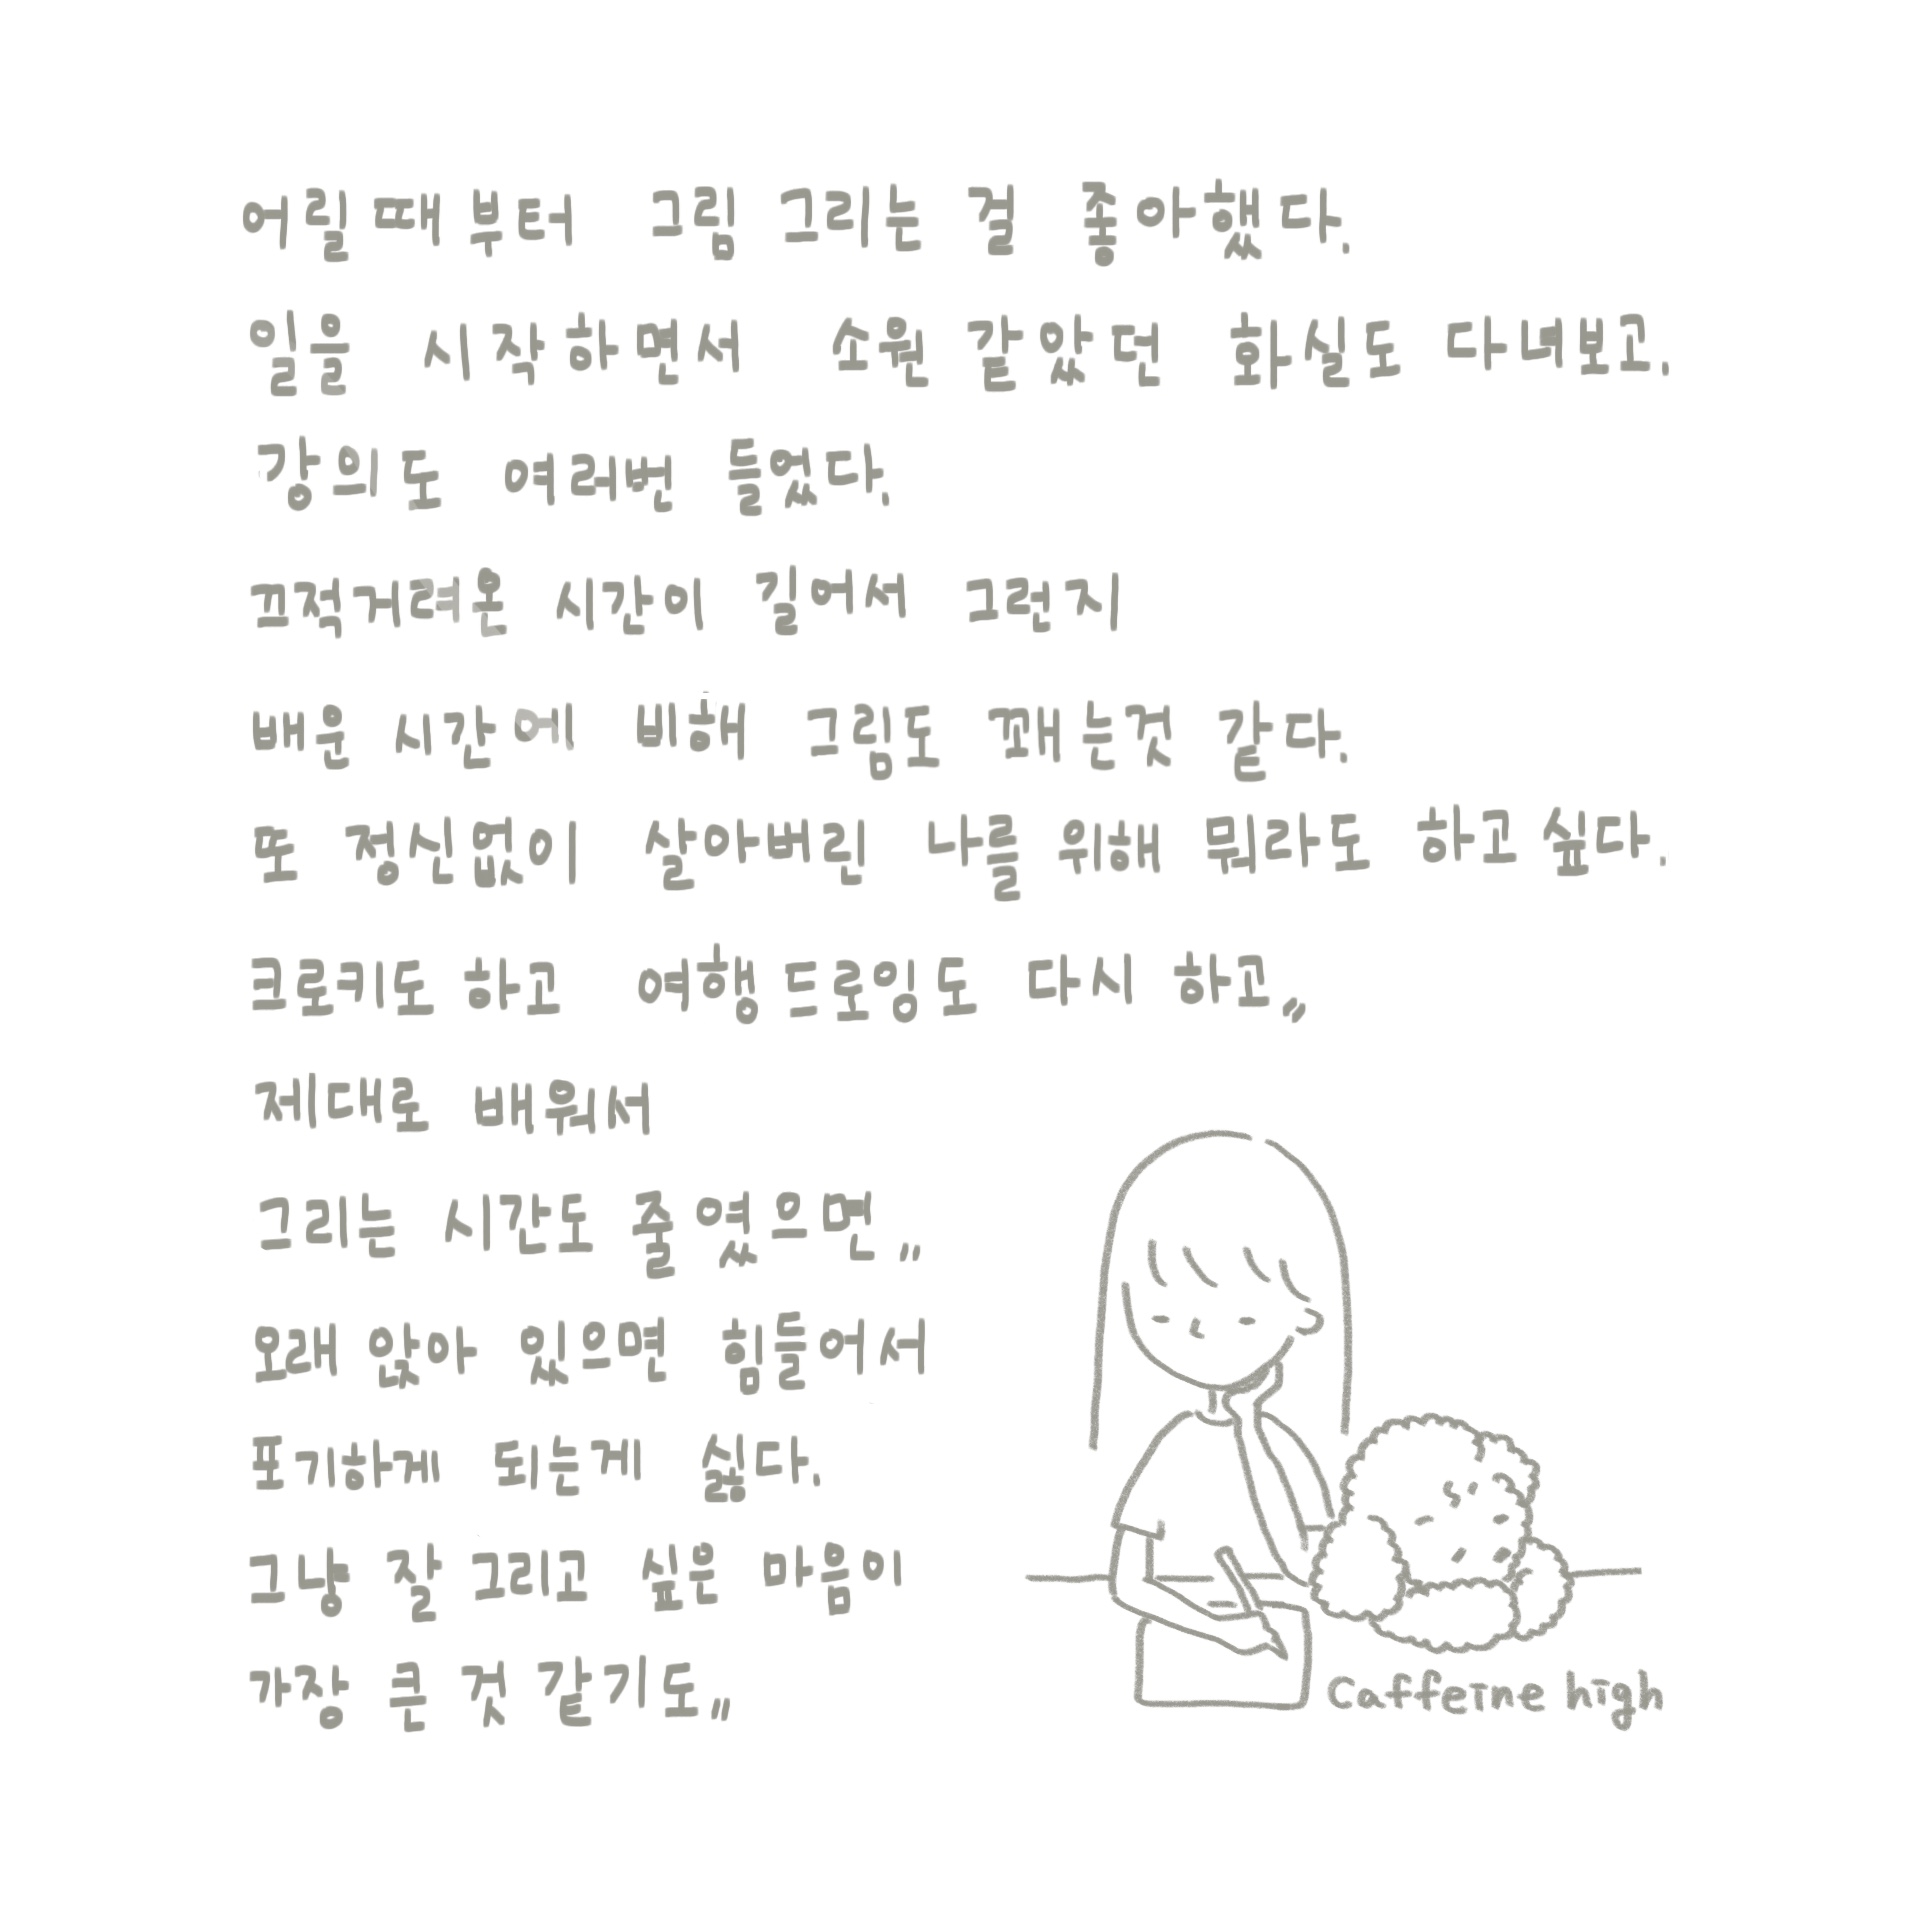 어릴때부터 그림 그리는 걸 좋아했다.
일을 시작하면서 소원 같았던 화실도 다녀보고.
강의도 여러번 들었다.
끄적거려온 시간이 길어서 그런지
배운 시간에 비해 그림도 꽤는것 같다.
또 정신없이 살아버린 나를 위해 뭐라도 하고싶다.
크로키도 하고 여행 드로잉도 다시 하고,,
제대로 배워서
그리는 시간도 줄였으면,,
오래 앉아 있으면 힘들어서
포기하게 되는게 싫다.
그냥 잘 그리고 싶은 마음이
가장 큰 것 같기도,,
Caffeine high